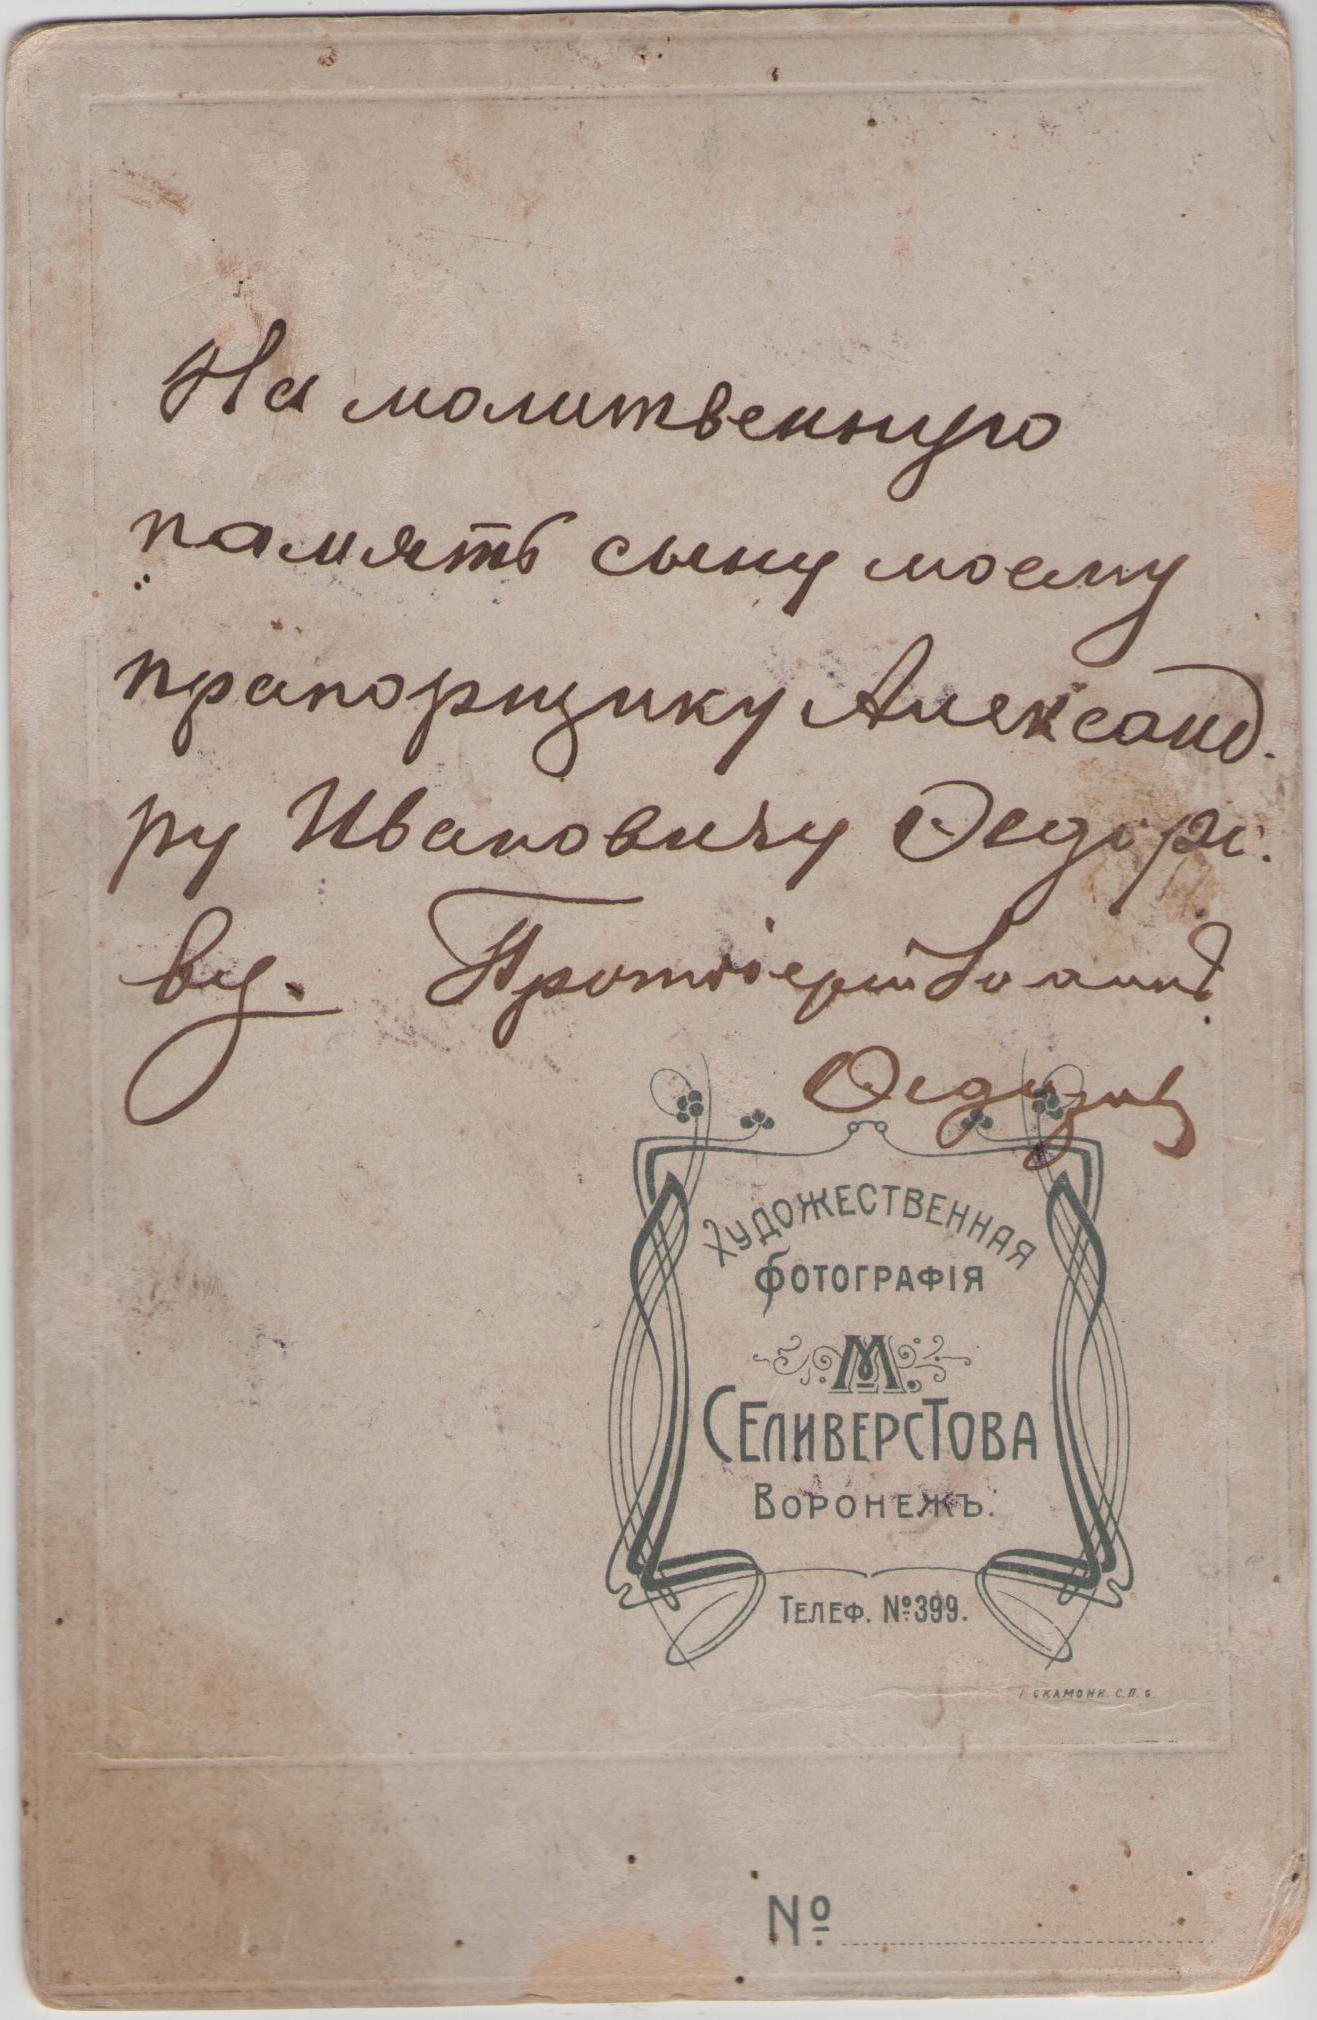 На молитвенную
память сыну моему
прапорщику Александ.
ру Ивановичу Ѳедоро.
ву. Протоіерей Іоаннъ
Ѳедоровъ
ХУДОЖЕСТВЕННАЯ
ФОТОГРАФІЯ
М.
СЕЛИВЕРСТОВА
ВОРОНЕЖЪ.
ТЕЛЕФ. №399.
СКАМОНИ. С.П.Б
№